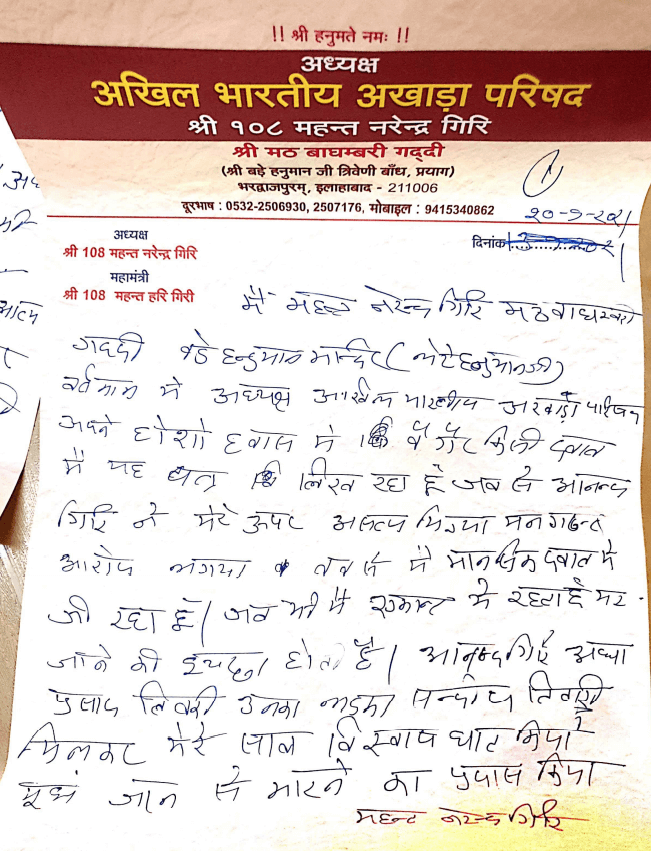 !! श्री हनुमते नमः !!
अध्यक्ष
अखिल भारतीय अखाड़ा परिषद
श्री १०८ महन्त नरेन्द्र गिरि
श्री मठ बाघम्बरी गद्दी
(श्री बड़े हनुमान जी त्रिवेणी बाँध, प्रयाग)
भरद्वाजपुरम्, इलाहाबाद - 211006
दूरभाष : 0532-2506930, 2507176, मोबाइल : 9415340862
अध्यक्ष
श्री 108 महन्त नरेन्द्र गिरि
महामंत्री
श्री 108 महन्त हरि गिरी
1
दिनांक
मैं महन्त नरेन्द्र गिरि मठ बाघम्बरी
गद्दी बडे हनुमान मन्दिर (लेटे हनुमानजी)
वर्तमान मे अध्यक्ष अखिल भारतीय अखाड़ा परिषद
अपने होशो हवास मे गैर किसी दबाव
मै यह पत्र लिख रहा हूँ जब से आनन्द
गिरि ने मेरे ऊपर असत्य मिथ्या मनगढन्त
आरोप लगाया तब से मै मानसिक दबाव मे
जी रहा हूँ। जब भी मै एकान्त मे रहता हूँ मर
जाने की इच्छा होती है। आनन्द गिरि आद्या
प्रसाद तिवारी उनका लड़का सन्दीप तिवारी
मिलकर मेरे साथ विश्वासघात किया
मुझे जान से मारने का प्रयास किया
महन्त नरेन्द्र गिरि